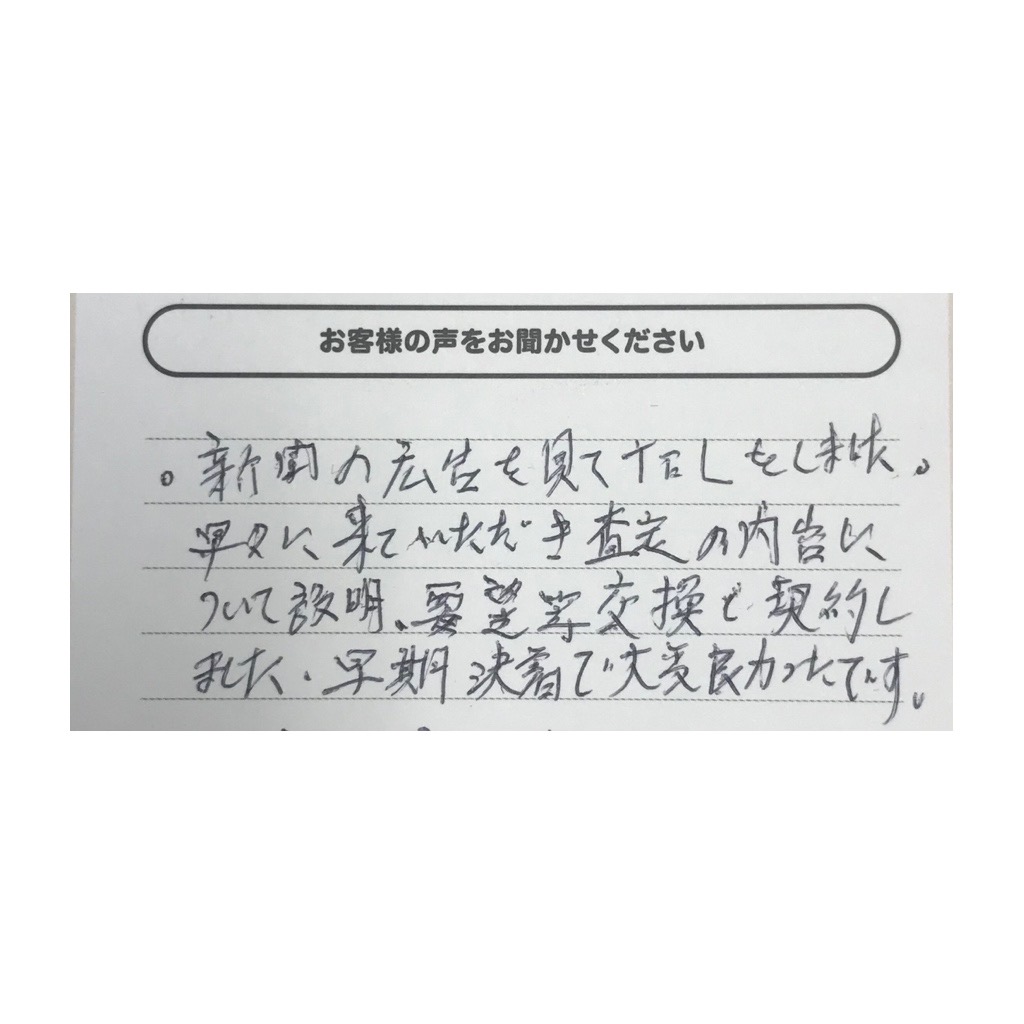 お客様の声をお聞かせください
。新聞の広告を見てTELをしました。
早々に来ていただき査定の内容に
ついて説明、要望等交換し契約し
ました。早期決着で大変良かったです。